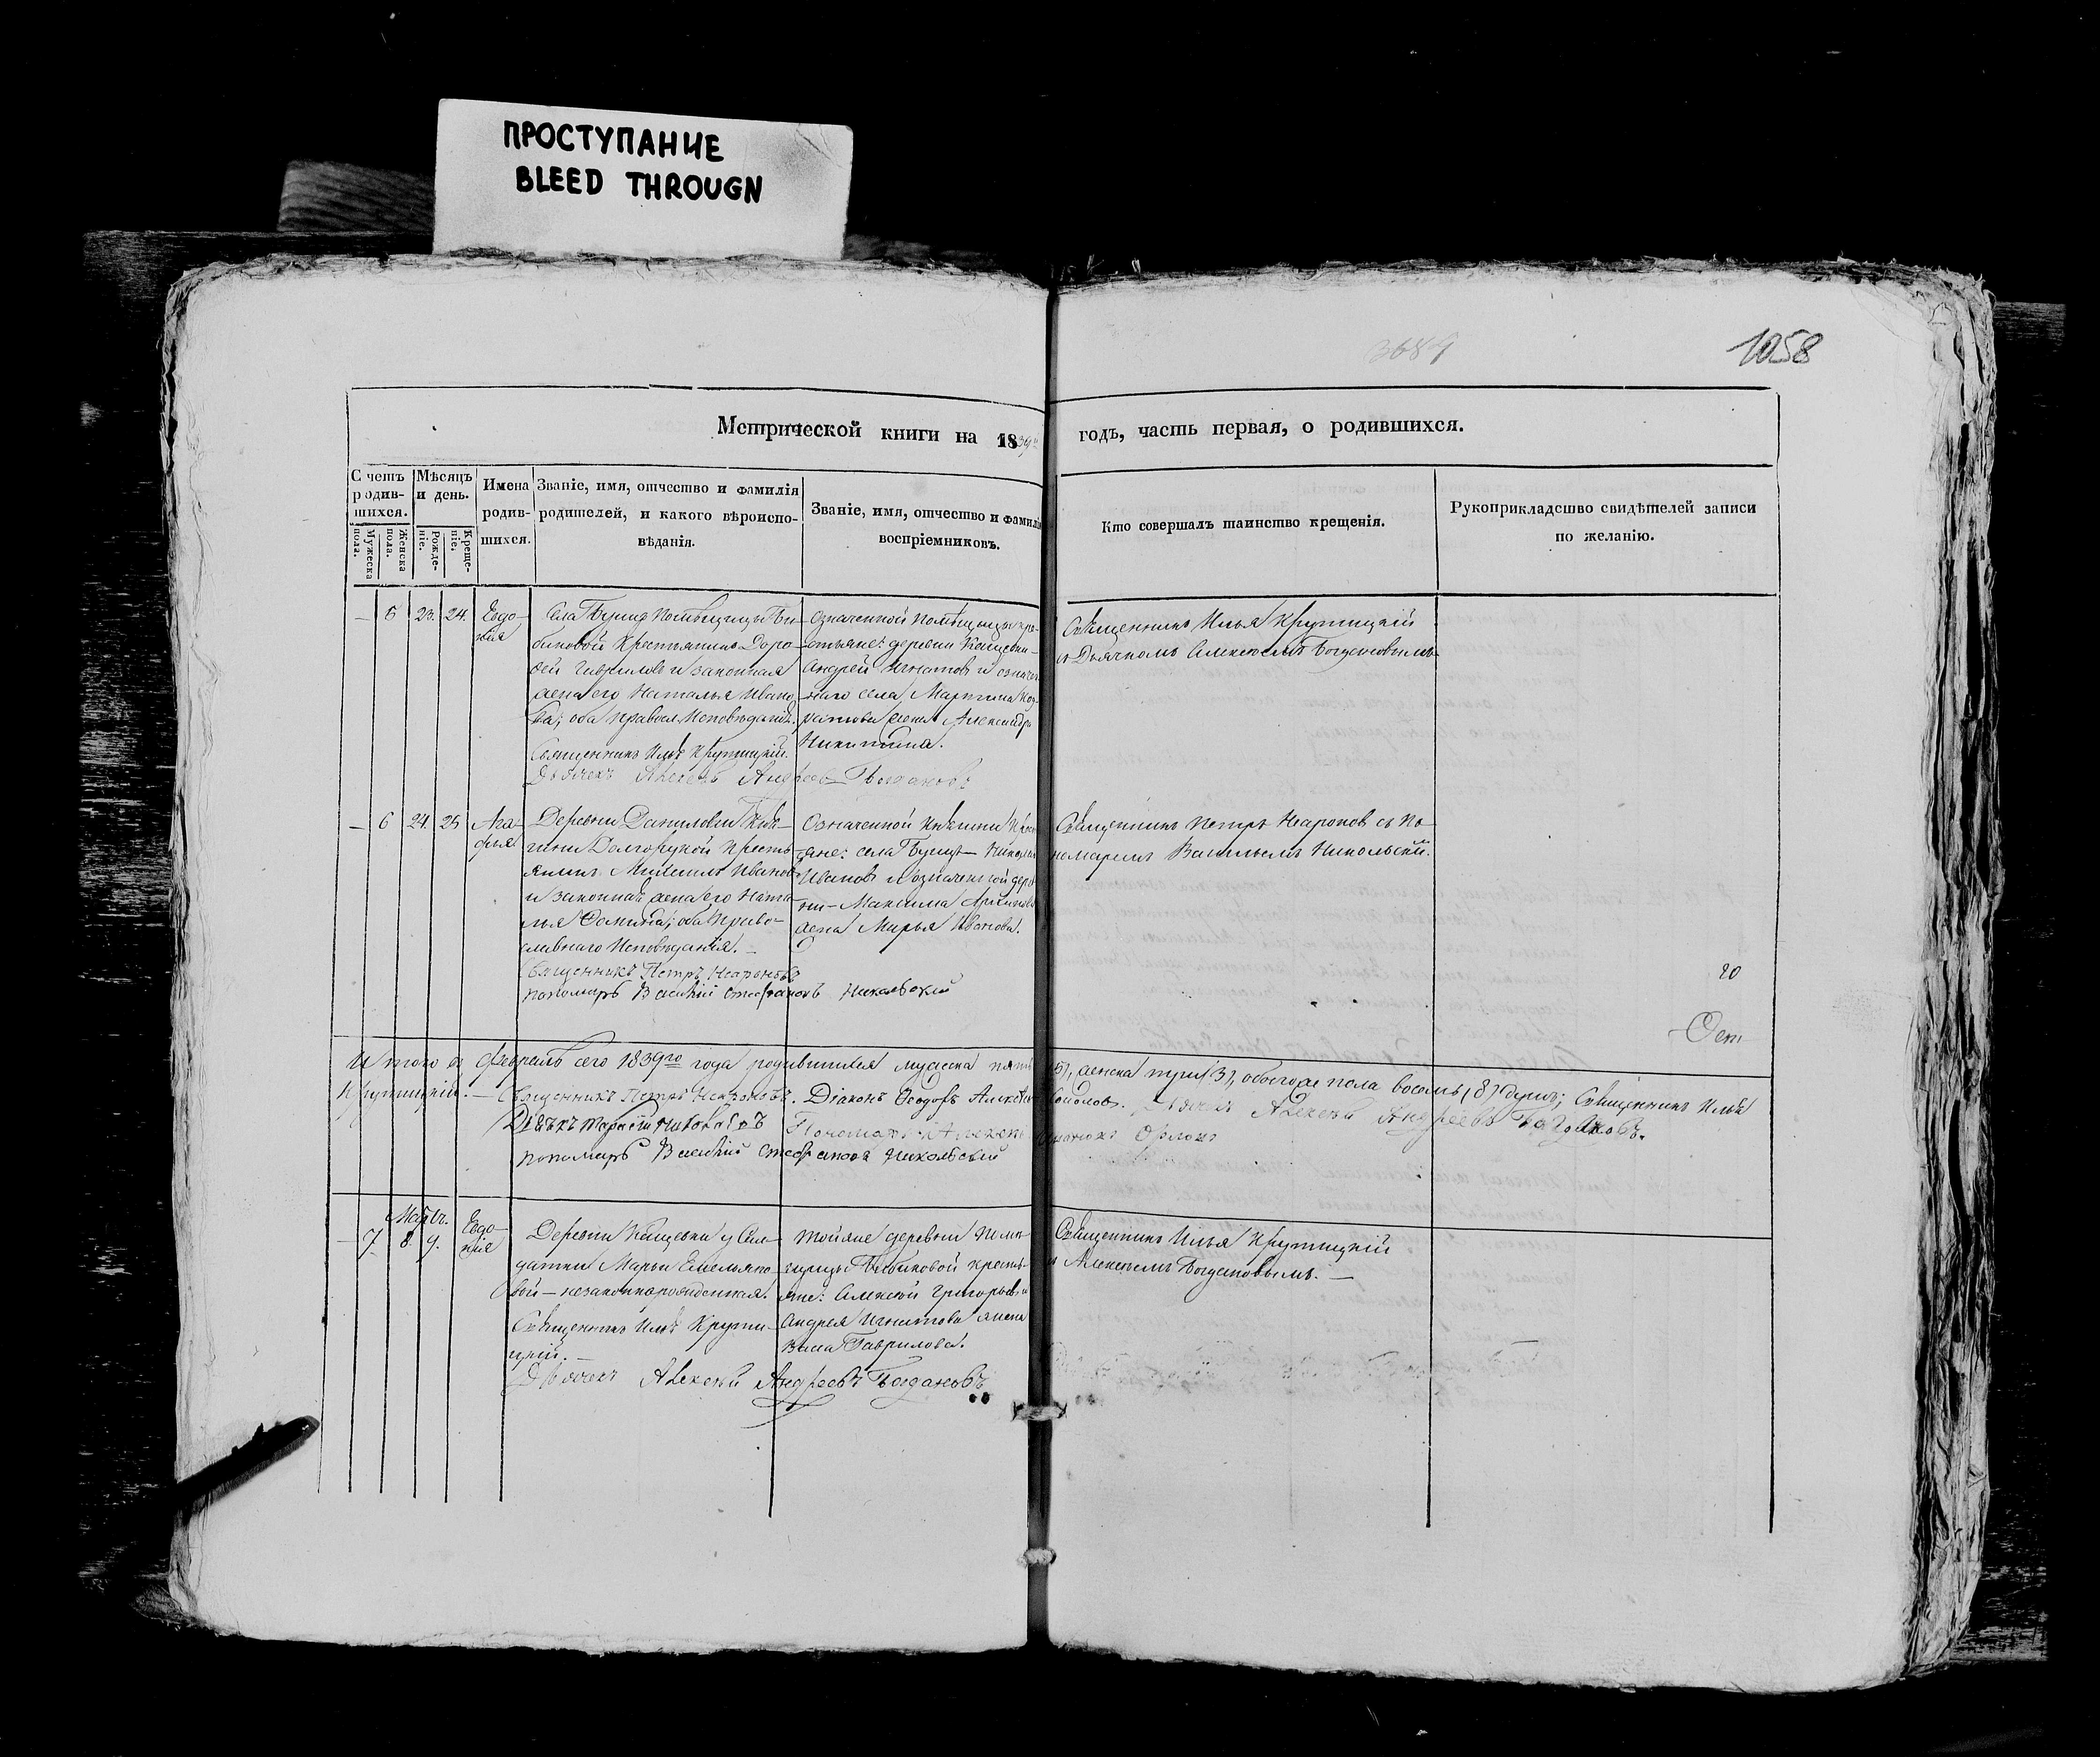 ПРОСТУПАНИЕ
BLEED THROUGN
1058
Метрической книги на 1839 годъ, часть первая, о родившихся.
Счетъ родив-шихся.
Мужеска пола.
Женска пола.
Мѣсяцъ и день.
Рожде-ніе.
Креще-ніе.
Имена родив-шихся.
Званіе, имя, отчество и фамилія родителей, и какого вѣроиспо-вѣданія.
Званіе, имя, отчество и фамилія воспріемниковъ.
Кто совершалъ таинство крещенія.
Рукоприкладсшво свидѣтелей записи по желанію.
— 5 23. 24. Евдо-
кія
Села помѣщицы Би-
биковой Крестьянинъ Доро-
фей Гавриловъ и законная
жена его Наталья Ивано-
ва; оба Правосл. Исповѣданія.
Священникъ Илья Крутицкій.
Дьячекъ Алексѣй Андреевъ Богдановъ
Означенной помѣщицы кре-
стьяне: деревни
Андрей Игнатовъ и означен-
наго села Мартина
жена Александра
Никитина.
Священникъ Илья Крутицкій
съ Дьячкомъ Алексѣемъ Богдановымъ
— 6 24. 25 Ага-
фья
Деревни Даниловки Кня-
гини Долгорукой Кресть-
янинъ Михаилъ Ивановъ
и законная жена его Ната-
лья Фомина; оба Право-
славнаго Исповѣданія. —
Священникъ Петръ
пономарь Василій Стефановъ Никольскій
Означенной Княгини Крес-
яне: села Николай
Ивановъ и означенной дере-
ни — Максима
жена Марья Иванова.
Священникъ Петръ съ По-
номаремъ Васильемъ Никольскимъ.
Итого въ Февралѣ сего 1839го года родившихся мужеска пять (5), женска три (3), обоего пола восемь (8) душъ; Священникъ Илья
Крутицкій. — Священникъ Петръ Діаконъ Ѳеодоръ Дьячекъ Алексѣй Андреевъ Богдановъ.
Пономарь Орловъ
пономарь Василій Стефановъ Никольскій
Мартъ.
— 7 8 9. Евдо-
кія
Деревни у Сол-
датки Марьи Емельяно-
вой — незаконнорожденная.
Священникъ Илья Крути-
цкій. —
Дьячекъ Алексѣй Андреевъ Богдановъ
Той же деревни помѣ-
щицы Бибиковой кресть-
яне: Алексѣй Григорьевъ и
Андрея Игнатова жена
Гаврилова.
Священникъ Илья Крутицкій
съ Алексѣемъ Богдановымъ. —